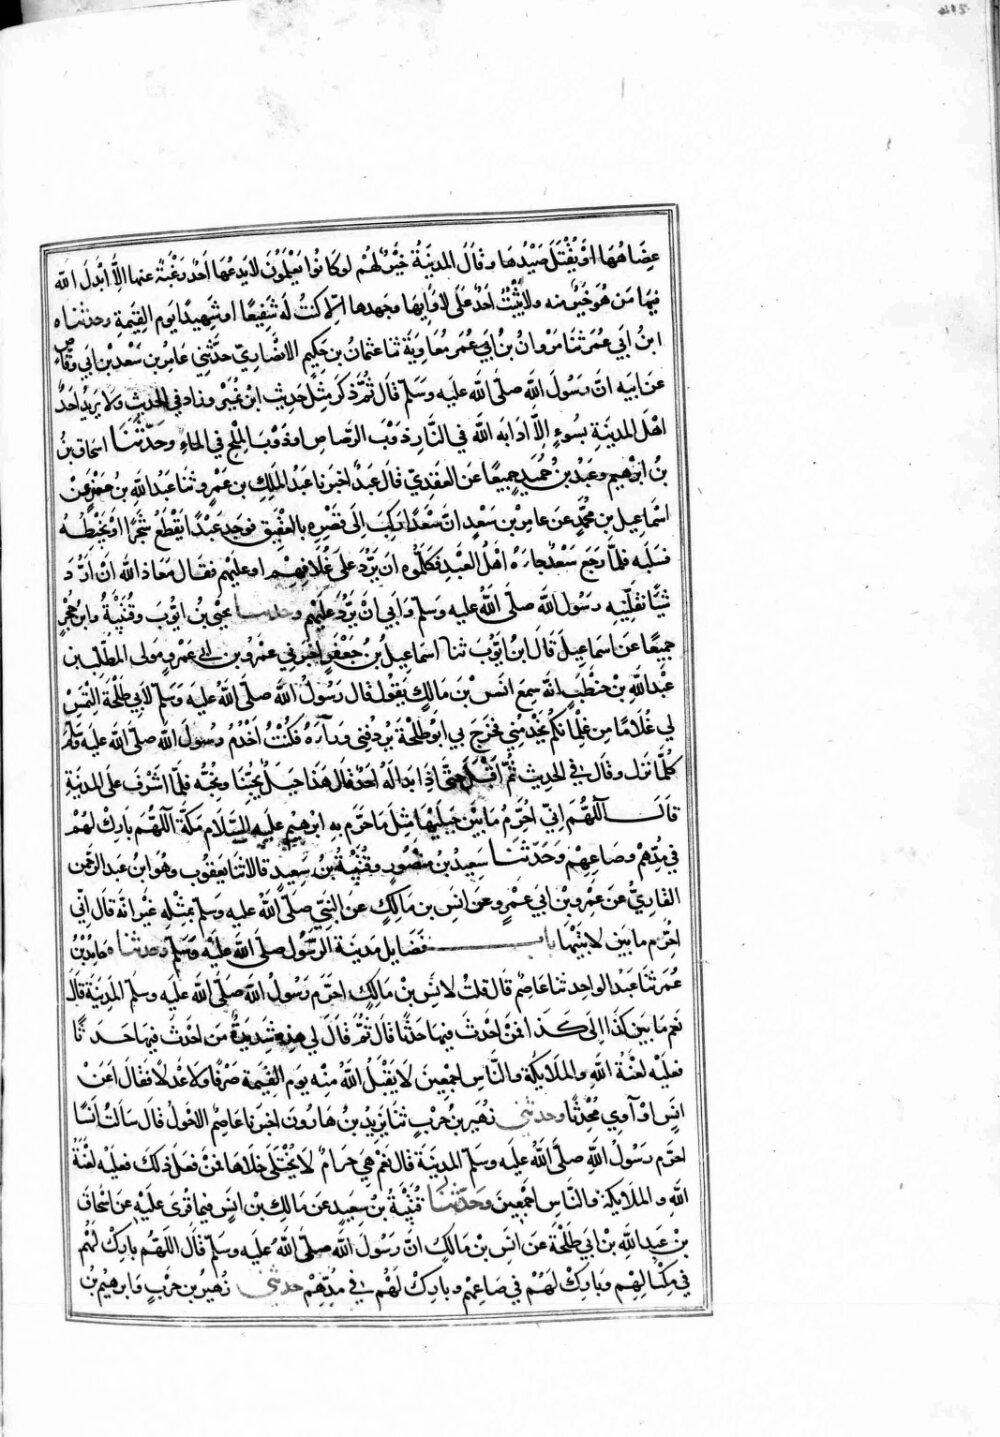 عِضَاهُهَا اَوْ يُقْتَلَ صَيْدُهَا وقَالَ المدِيَنَةُ خَيْرٌ لهُم لو كانُوا يَعْلَمُونَ لا يدعُهَا اَحَدٌ رَغْبَةً عنها اِلاَّ ابْدلَ الله
فِيهَا مَن هُوَ خَيْرٌ منه ولا يَثْبُتُ اَحدٌ عَلَى لأوَائِهَا وجَهدها اِلا كنتُ لَهُ شَفِيعًا او شَهِيدًا يَوم القِيمَةِ وحدثناه
ابنُ ابي عُمَرَ ثنا مَرْوَانُ بنُ مُعَاوِيَةَ ثنا عثمانُ بن حَكِيمٍ الانْصَارِيّ حدَّثَنِي عَامِرُ بن سَعْدِ بن ابي وقاص
عَن ابيَه انَّ رَسُولَ اللَّه صلّى اللَّه عليَه وسَلّم قَالَ ثُمَّ ذَكَرَ مِثلَ حَدِيث ابن نُمَيرٍ وزاد في الحديثِ ولا يريدُ احَدٌ
اهْلَ المدِينَةِ بسُوءٍ اِلاَّ اذابَه اللَّه في النَّارِ ذوْبَ الرصَاصِ او ذوْبَ المِلْحِ في الماءِ وحَدَّثَنَا اسحَاقُ بنُ
بنُ ابرهيم وعبدُ بنُ حُمَيدٍ جميعًا عن العَقَدِيّ قالَ عَبدٌ اخبَرَنا عَبدُ المَلِكِ بنُ عَمْرٍو ثنا عبدُ اللَّهِ بنُ جعفر عن
اسْمَاعِيل بن مُحَمَّدٍ عن عامرِ بن سَعدٍ انَّ سَعْدًا رَكِبَ اِلَى قصْرِهِ بالعَقِيقِ فوَجد عَبْدًا يَقْطَعُ شَجَرًا اَوْ يَخْبِطُهُ
فسَلَبَه فلمَّا رَجَعَ سَعْدٌ جاءَهُ اهْلُ العَبْدِ فكَلَّمُوه ان يَرُدَّ على غُلامِهِمْ او عليْهِم فقَال مَعَاذ الله ان اَرُدَّ
شيْأً نفَّلَنِيْهِ رسُول اللَّه صلّى اللَّهُ عليه وسَلّم وَابي انْ يَرُدَّ عَلَيْهِم وحدثنا يحيَى بنُ ايُّوبَ وقُتَيْبَةُ وابنُ حُجْرٍ
جَمِيعًا عَن اسمَاعِيلَ قَالَ ابنُ ايُّوبَ ثنا اسماعِيلُ بنُ جَعْفَرٍ اخبَرني عَمْرُو بن ابي عَمْرٍو مَولى المطّلبِ بن
عَبْدِ اللَّهِ بن حَنطَبٍ انَّه سَمِعَ انَسَ بْنَ مَالِكٍ يَقُولُ قَالَ رَسُولُ اللَّه صلّى اللَّهُ عليهَ وَسَلَّمَ لابِي طَلْحَةَ التمِسْ
لي غُلامًا مِن غِلمانِكم يَخْدِمُني فخرَجَ بي ابُو طَلْحَةَ يردُفني ورَآءَهُ فكُنْتُ اخْدُمُ رسُولَ اللَّه صلّى الله عليه وسلم
كلَّمَا نزل وقَالَ في الحديثِ ثُمَّ اَقْبَلَ حتَّى اِذا بَدالَهُ احُدٌ قال هَذَا جَبَلٌ يُحِبُّنا ونُحِبُّهُ فلَمَّا اشرَفَ علَى المدِينَةِ
قالَ اللَّهُمَّ انّي احَرِّمُ مَا بَيْنَ جَبَلَيْهَا مِثلَ ما حَرَّم بِهِ ابرهيمُ عليهِ السَّلام مَكَّةَ اللَّهُمَّ بَارِكْ لهُمْ
في مدِّهِمْ وصَاعِهِمْ وَحَدّثنَا سَعِيدُ بنُ منصُورٍ وقُتَيْبَةُ بنُ سَعِيدٍ قالا ثنا يَعقُوب وهُو ابنُ عبد الرّحمن
القاريّ عن عَمْرِو بْن ابي عَمْرٍو عن انَسِ بن مالِكٍ عَن النّبيّ صلّى اللَّهُ عليه وسَلّم بمثْلِه غيْرَ انَّه قال انّي
احَرِّم ما بين لابتَيْهَا باب فضَايِل مَدِينَة الرّسُول صلّى اللَّه علَيه وسَلّم وحدثناه حامِدُ بنُ
عُمَرَ ثنا عَبدُ الواحِدِ ثنا عَاصِمٌ قالَ قلتُ لانَسِ بْن مَالِكٍ احَرَّم رَسُولُ اللَّه صلّى اللَّه علَيه وسَلّم المدِيَنَة قال
نعم مَا بَين كذا الى كَذا فمنْ احْدَثَ فيهَا حَدَثًا قَالَ ثُمَّ قَالَ لي هذِه شَدِيدَةٌ مَن احْدَثَ فيهَا حَدثًا
فعَلَيْه لعْنَةُ اللَّهِ والمَلايِكَةِ والنَّاسِ اجمعِينَ لا يَقْبَلُ اللَّهُ مِنْه يَومَ القِيَمَة صَرْفًا ولا عَدْلًا فقَالَ ابن
انَسٍ اوْ آوَى مُحْدِثًا وحدثني زُهَيرُ بنُ حَرْبٍ ثنَا يَزِيدُ بنُ هَارُونَ اخبَرَنا عَاصِمٌ الاحْولُ قَالَ سَالتُ اَنَسًا
احَرَّم رَسُولُ اللَّهِ صلّى اللَّهُ علَيه وسَلّم المدِينَةَ قَالَ نعَم هيَ حَرامٌ لا يُخْتَلَى خَلاهَا فمنْ فَعَلَ ذلكَ فعليه لعْنَةُ
اللَّه والملايِكة والنَّاسِ اجْمَعِينَ وحَدّثنَا قُتَيْبَةُ بنُ سَعِيدٍ عَن مَالِكِ بْنِ انَسٍ فيما قُرِئَ علَيْهِ عن اسْحَاقَ
بْنِ عَبدِ اللَّهِ بْنِ ابي طَلْحَةَ عَن انَسِ بْن مَالِكٍ انَّ رَسُولَ اللَّه صَلّى اللَّهُ عليَه وسَلّمَ قَالَ اللَّهُمَّ بَارِكْ لَهُمْ
في مِكْيَالِهِم وَبَارِكْ لَهُمْ في صَاعِهِم وبارِكْ لَهُم في مُدِّهِمْ حدثني زُهَيرُ بن حَربٍ وَابرهيمُ بنُ